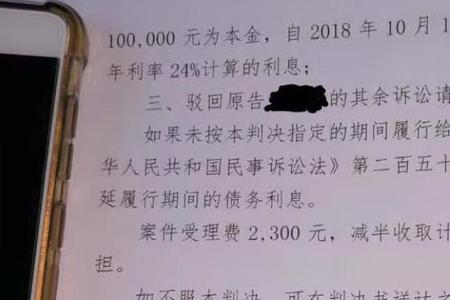 100,000 元为本金，自 2018 年 10 月 1
年利率 24%计算的利息；
三、驳回原告的其余诉讼请
如果未按本判决指定的期间履行给
华人民共和国民事诉讼法》第二百五十
延履行期间的债务利息。
案件受理费 2,300 元，减半收取计
担。
如不服本判决，可在判决书送达之